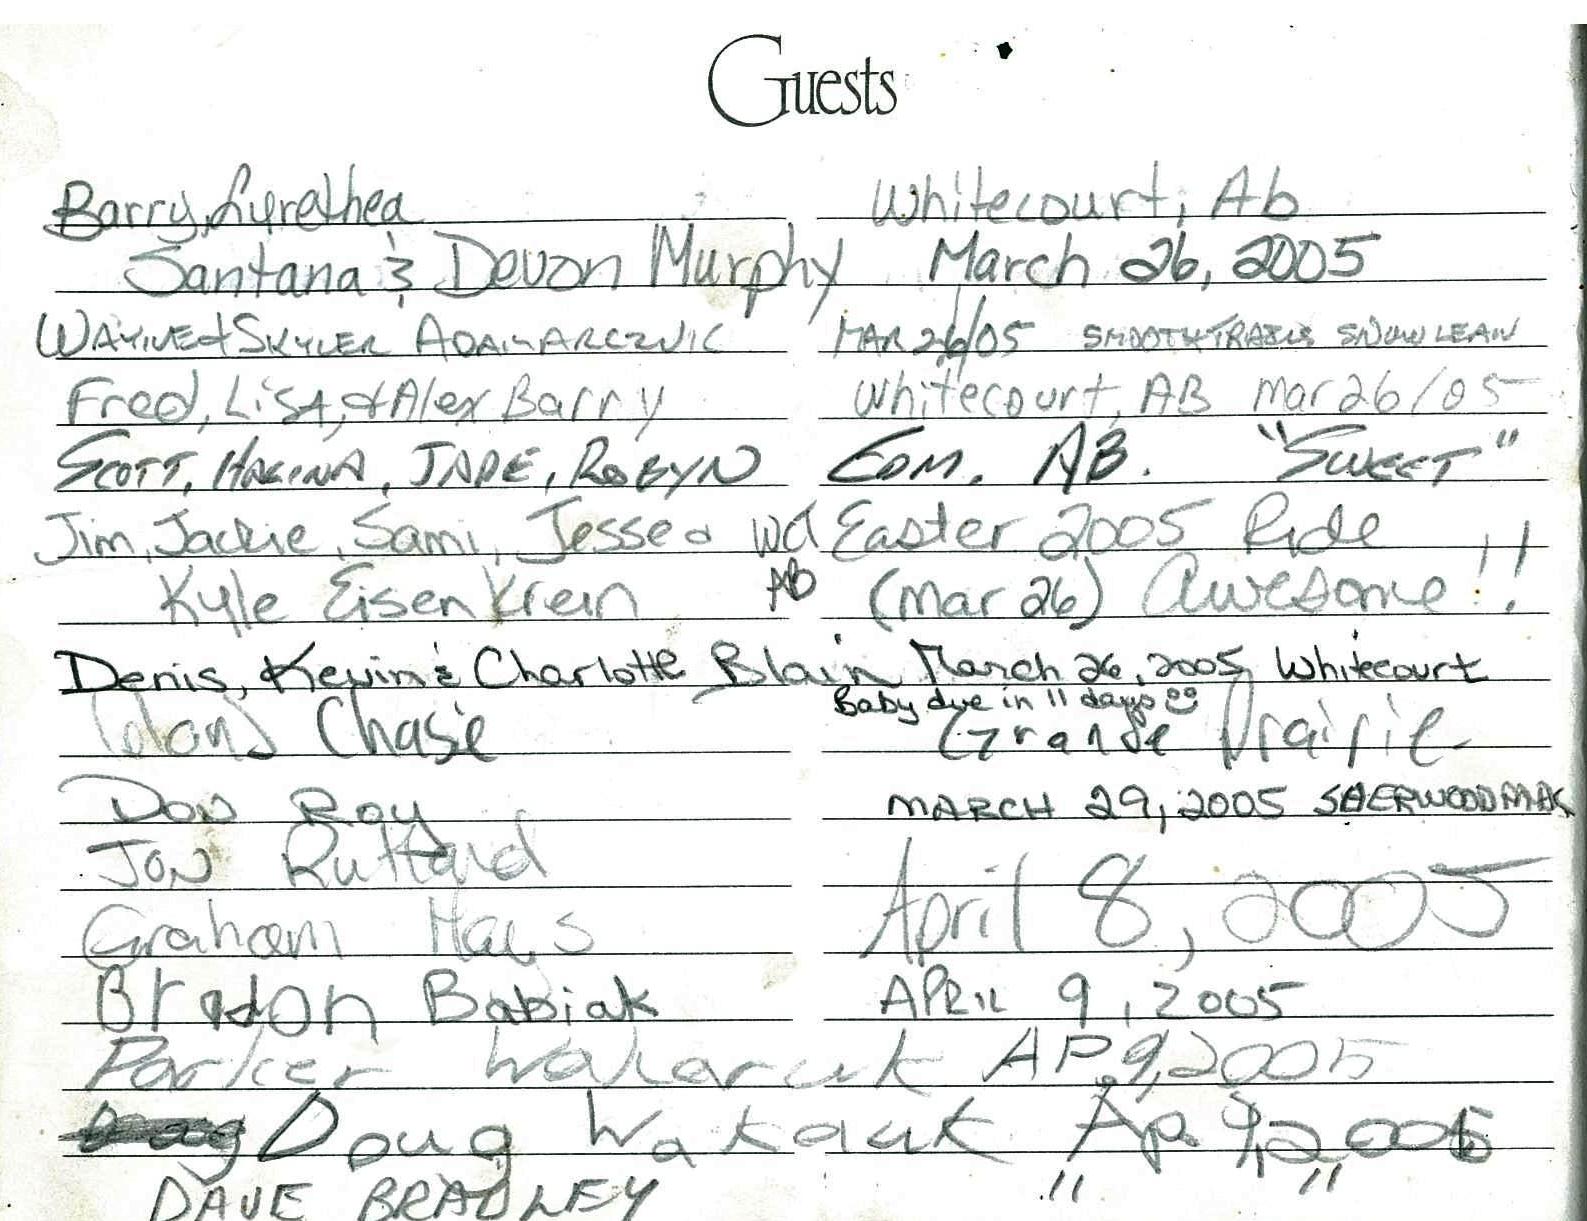 Guests
Barry, Lyrethea Whitecourt, Ab
Santana & Devon Murphy March 26, 2005
WAYNE & SKYLER ADAMARCZNIC MAR 26/05 SMOOTH TRAILS SNOW LEAN
Fred, LiSA, & Alex Barry Whitecourt, AB Mar 26/05
SCOTT, HALINA, JADE, ROBYN EDM. AB. "SWEET"
Jim, Jackie, Sami, Jesse & WCt Easter 2005 Ride
Kyle Eisenkrein AB (Mar 26) Awesome!!
Denis, Kevin & Charlotte Blain March 26, 2005 Whitecourt
Baby due in 11 days ☺
Chase Grande Prairie
Don Roy MARCH 29, 2005 SHERWOOD PARK
JON Ruttard
April 8, 2005
Graham Hays
Bradon Babiak APRIL 9, 2005
Parker Wakaruk AP. 9, 2005
Doug Wakaruk Ap. 9, 2005
DAVE BRADLEY " "